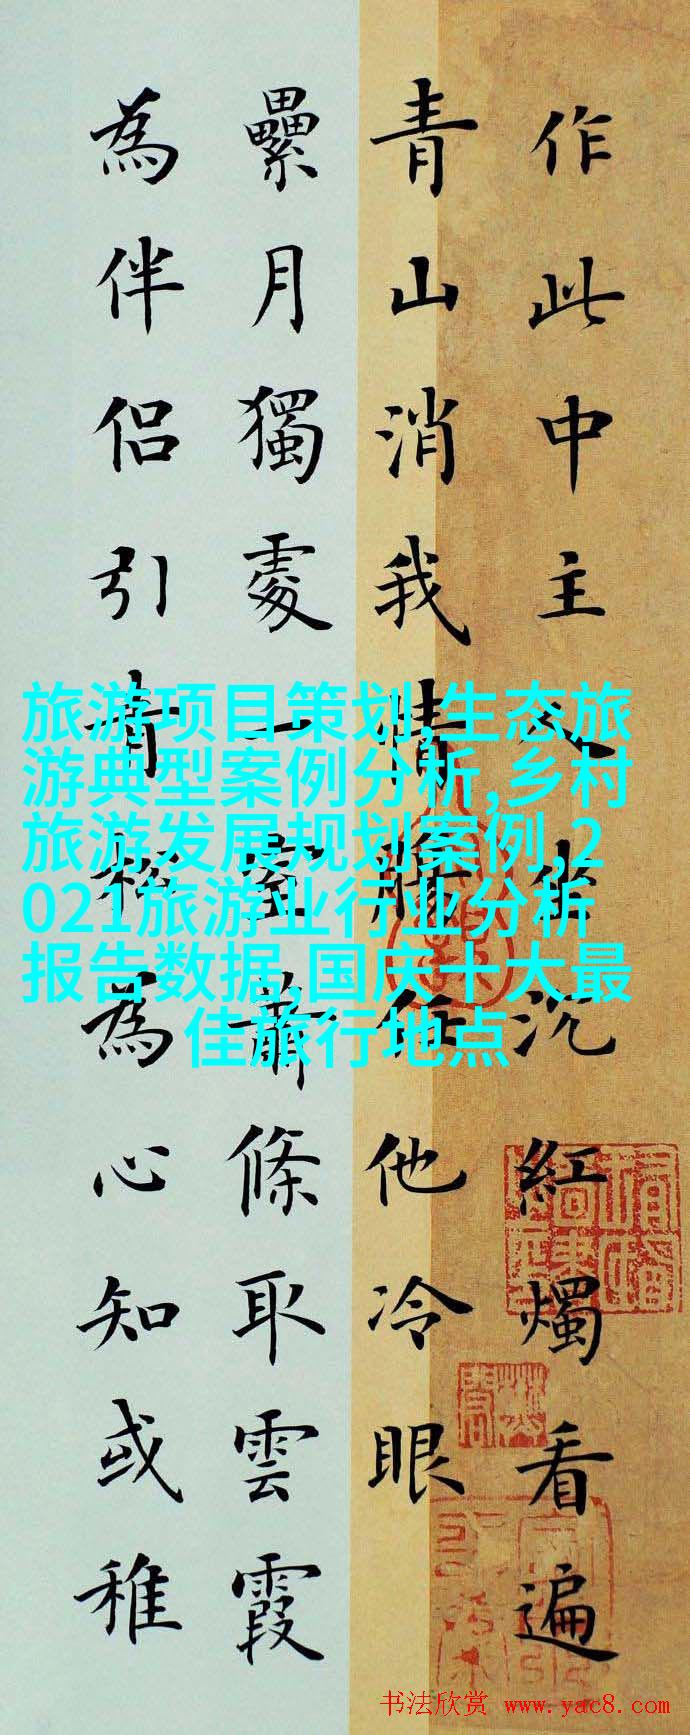 作此中主人坐沉紅燭看遍
青山消我情腸任他冷眼
纍月獨處一室蕭條取雲霞
為伴侶引青松為心知或稚
旅游项目策划,生态旅
游典型案例分析,乡村
旅游发展规划案例,2
021旅游业行业分析
报告数据,国庆十大最
佳旅行地点
书法欣赏 www.yac8.com